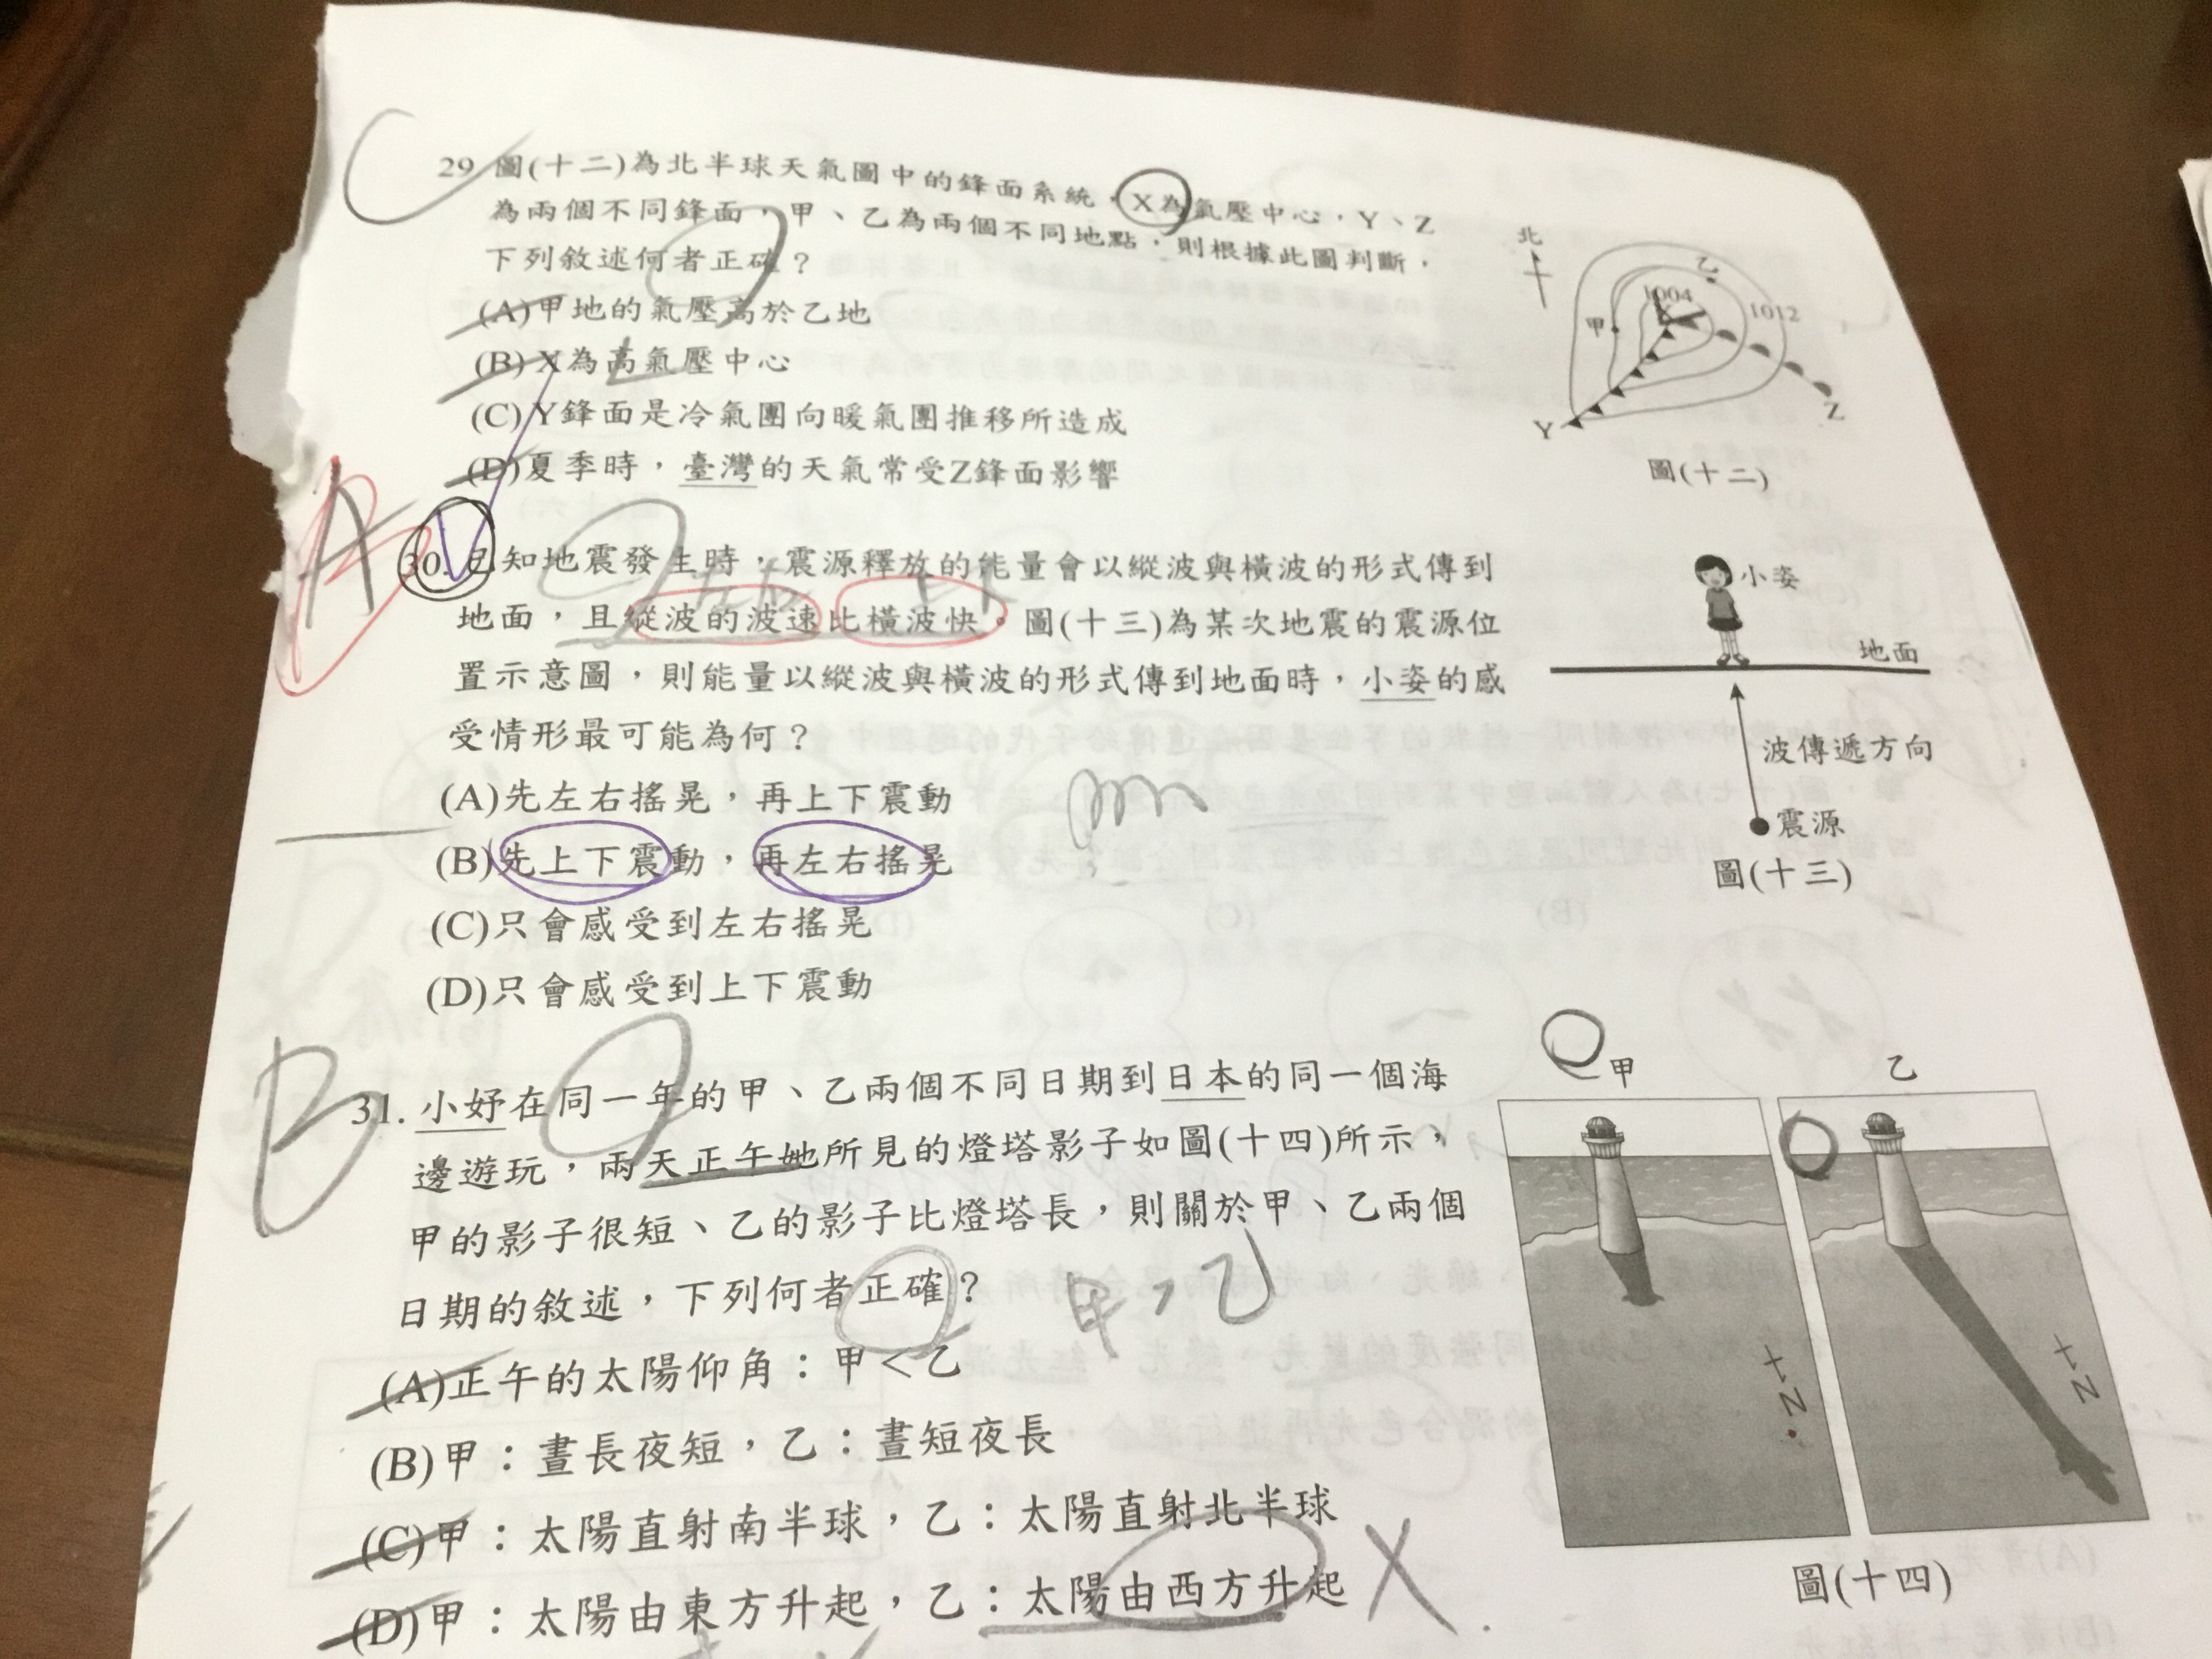 C
29. 圖(十二)為北半球天氣圖中的鋒面系統，X為氣壓中心，Y、Z
為兩個不同鋒面，甲、乙為兩個不同地點，則根據此圖判斷，
下列敘述何者正確？
(A)甲地的氣壓高於乙地
(B)X為高氣壓中心
L
(C)Y鋒面是冷氣團向暖氣團推移所造成
(D)夏季時，臺灣的天氣常受Z鋒面影響
北
乙
1004
1012
甲
X
Y
Z
圖(十二)
A
30. 已知地震發生時，震源釋放的能量會以縱波與橫波的形式傳到
地面，且縱波的波速比橫波快。圖(十三)為某次地震的震源位
置示意圖，則能量以縱波與橫波的形式傳到地面時，小姿的感
受情形最可能為何？
(A)先左右搖晃，再上下震動
(B)先上下震動，再左右搖晃
(C)只會感受到左右搖晃
(D)只會感受到上下震動
小姿
地面
波傳遞方向
震源
圖(十三)
B
31. 小妤在同一年的甲、乙兩個不同日期到日本的同一個海
邊遊玩，兩天正午她所見的燈塔影子如圖(十四)所示，
甲的影子很短、乙的影子比燈塔長，則關於甲、乙兩個
日期的敘述，下列何者正確？
甲，乙
(A)正午的太陽仰角：甲＜乙
(B)甲：晝長夜短，乙：晝短夜長
(C)甲：太陽直射南半球，乙：太陽直射北半球
(D)甲：太陽由東方升起，乙：太陽由西方升起
X
甲
乙
N
N
圖(十四)